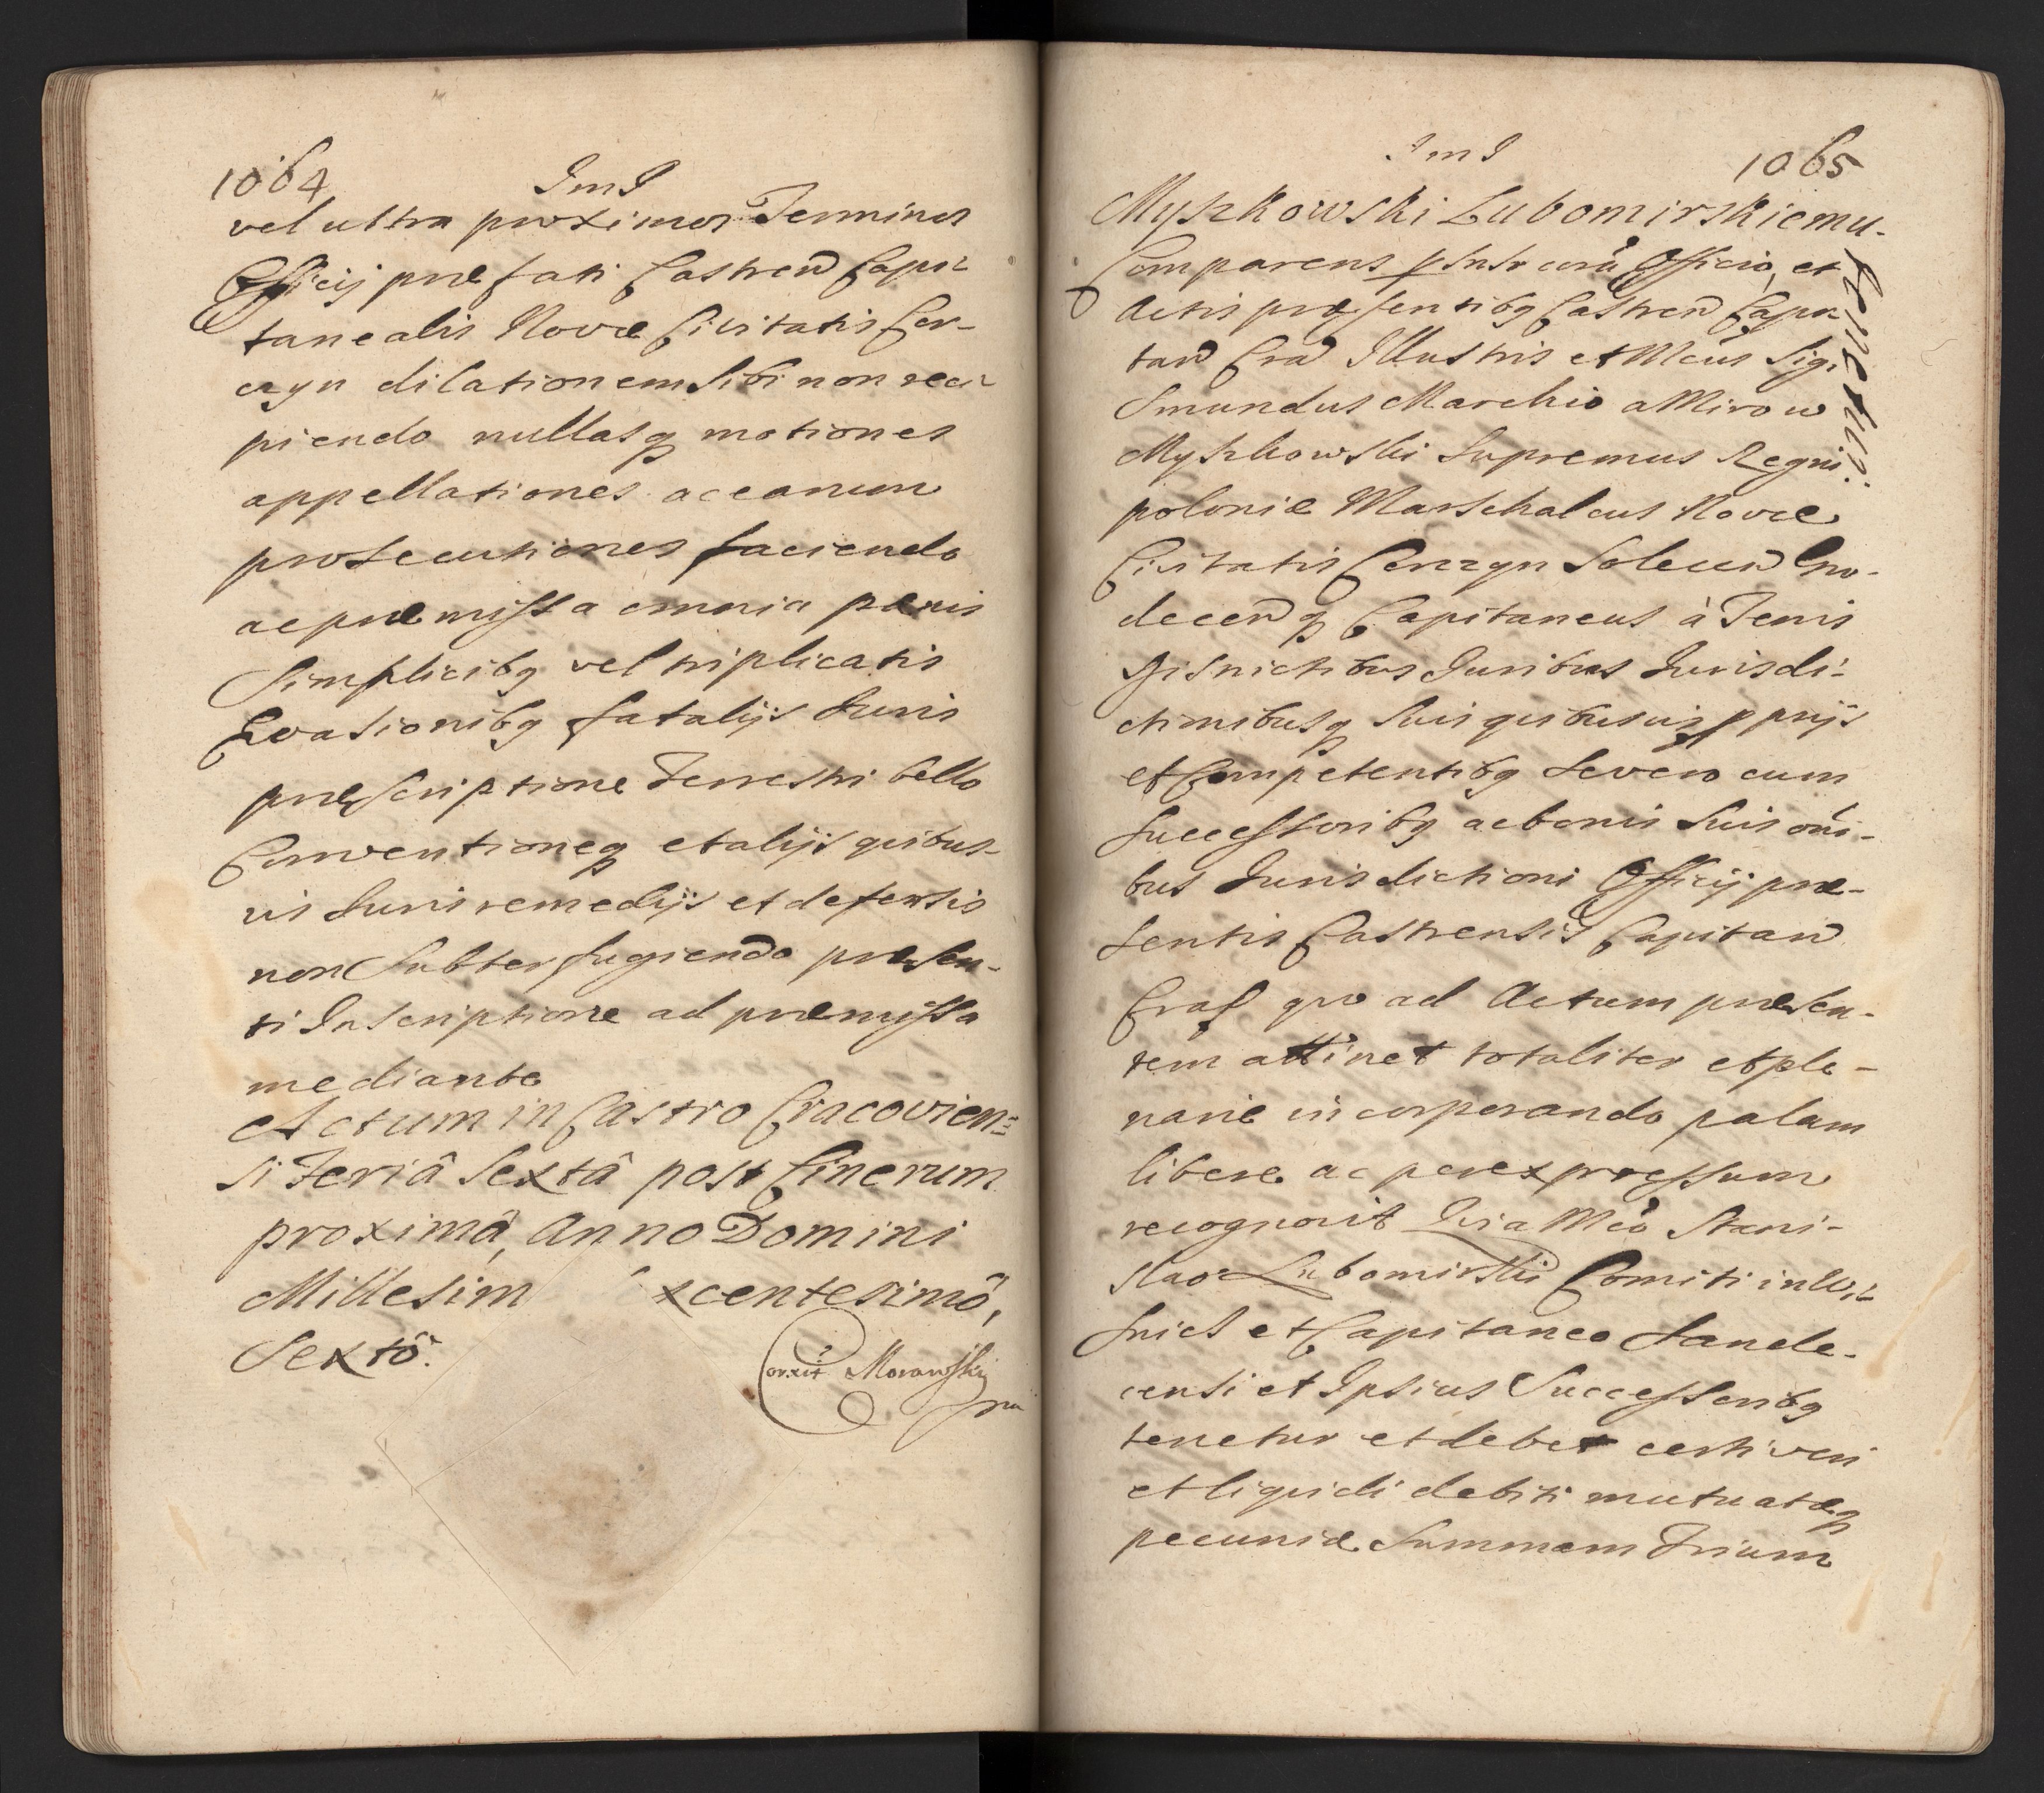 1064
ImI
vel ultra proximos Terminos
Officij præfati Castren Capi-
tanealis Novæ Civitatis Cor-
czyn dilationem sibi non reci-
piendo nullasq motiones
appellationes ac earum
prosecutiones faciendo
ac præmissa omnia pænis
Simplicibq vel triplicatis
Evasionibq fatalijs Juris
præscriptione Terrestri bello
Conventioneq et alijs quibus-
vis Juris remedijs et defensis
non Subterfugiendo præsen-
ti Inscriptione ad præmissa
mediante
Actum in Castro Cracovien=
si Feriâ Sextâ post Cinerum
proximâ, Anno Domini
Millesim xcentesimô,
Sextô.
Corxit Morawski
mp
ImI
1065
Myszkowski Lubomirskiemu.
Comparens psnlr corã Officio, et
Actis præsentibq Castren Capi-
tan Cra Illustris et Mcus Sigi-
smundus Marchio a Mirow
Myszkowski Supremus Regni
poloniæ Marschalcus Novæ
Civitatis Corczyn Solecen Gro-
decenq Capitaneus à Terris
Districtibus Juribus Jurisdi-
ctionibusq Suis quibusuis pprijs
et Competentibq Se vero cum
Successoribq ac bonis Suis oñi-
bus Jurisdictioni Officij præ-
sentis Castrensis Capitan
Crac quo ad Actum præsen-
tem attinet totaliter et ple-
narie incorporando palam
libere ac per expressum
recognovit Quia Mco Stani-
slao Lubomirski Comiti in Wi-
snicz et Capitaneo Sande-
censi et Ipsius Successoribq
tenetur et debet certi veri
et liquidi debiti mutuatæq
pecuniæ Summam Trium